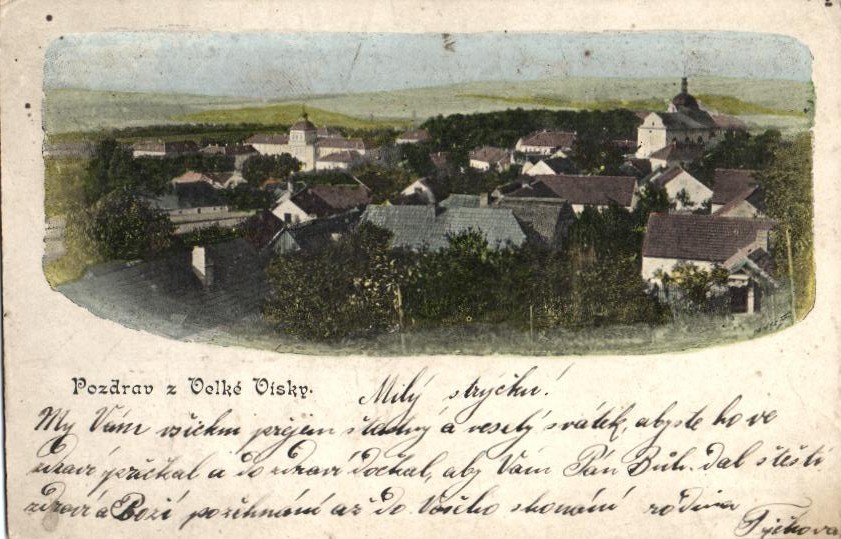 Pozdrav z Velké Vísky.
Milý strýčku!
My Vám všickni přejem šťastný a veselý svátek, abyste ho ve
zdraví přečkal a do zdraví dočkal, aby Vám Pán Bůh dal štěstí
zdraví a Boží požehnání až do Vašeho skonání rodina
Týčkova